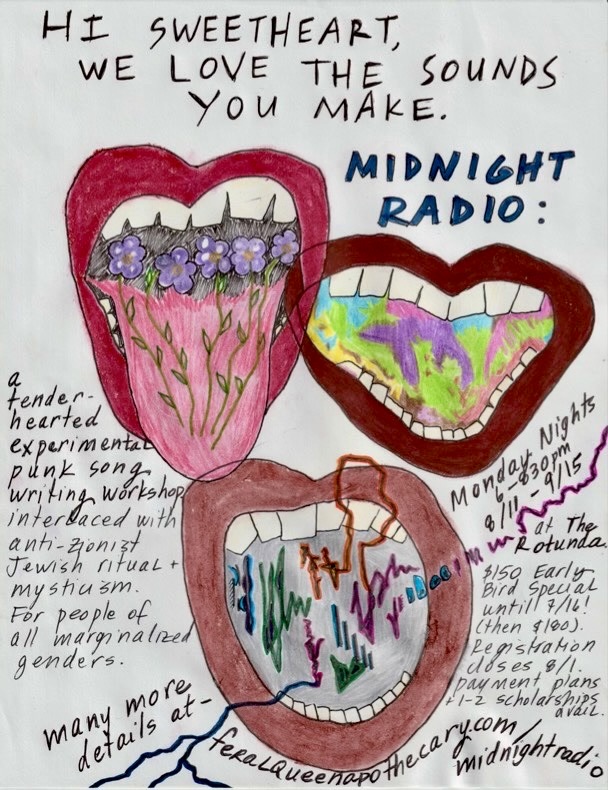 HI SWEETHEART,
WE LOVE THE SOUNDS
YOU MAKE.
MIDNIGHT
RADIO:
a
tender-
hearted
experimental
punk song
writing workshop
interlaced with
anti-zionist
Jewish ritual +
mysticism.
For people of
all marginalized
genders.
Monday Nights
6-830pm
8/11 - 9/15
at The
Rotunda
$150 Early
Bird Special
untill 7/16!
(then $180).
Registration
closes 8/1.
payment plans
+1-2 scholarships
avail.
many more
details at-
feralqueenapothecary.com/
midnightradio